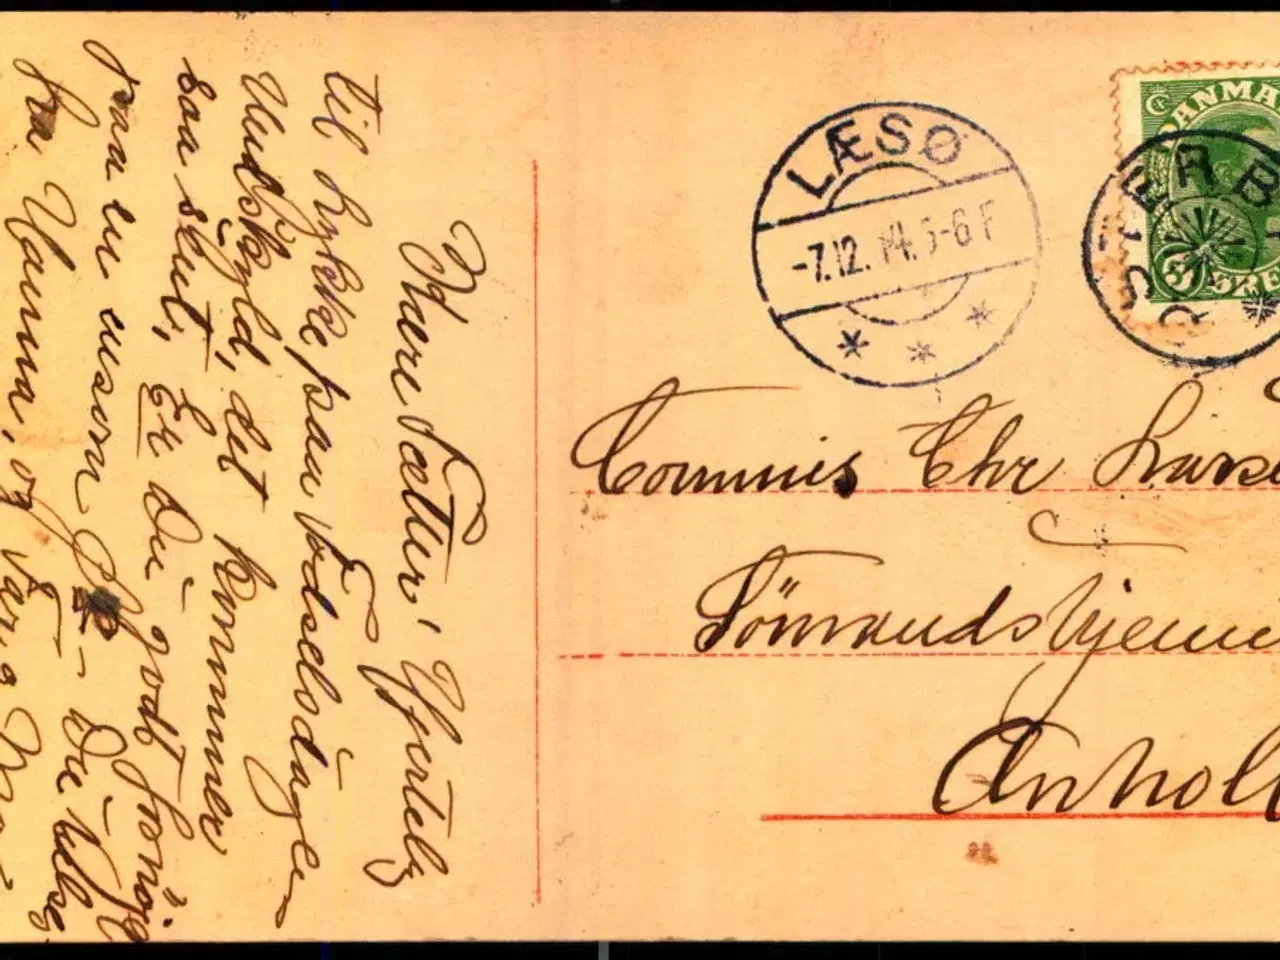 Kære Fætter! Hjertelig
til Lykke paa Fødselsdagen
Undskyld, det kommer
saa sent, Er Du godt fornøjet
paa en Du hilses
fra Hanna, og
LÆSØ
-7.12.14. 5-6 F
DANMA
5 ØRE
Commis Chr Larse
Sömandshjemm
Anhol